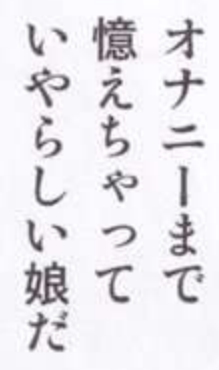 オナニーまで
憶えちゃって
いやらしい娘だ